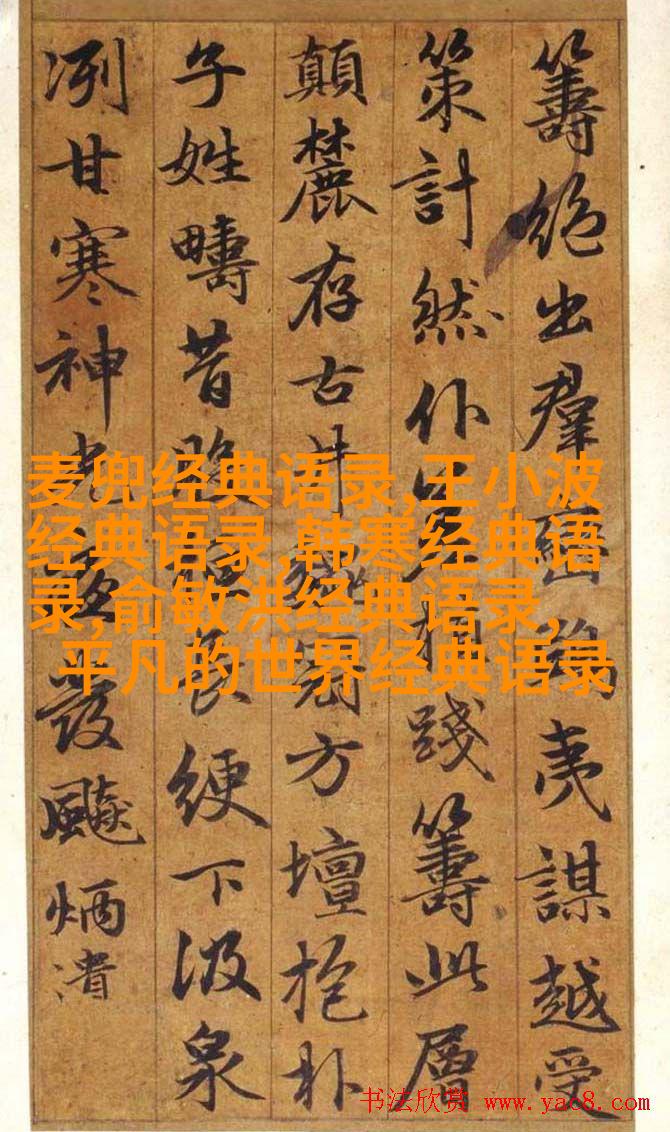 籌絕出羣夷謀越受
策計然仆踐籌此層
顛麓存古井方壇抱朴
子姓疇昔長綆下汲泉
冽甘寒神光夜發飈炳潰
麦兜经典语录,王小波
经典语录,韩寒经典语
录,俞敏洪经典语录,
平凡的世界经典语录
书法欣赏 www.yac8.com